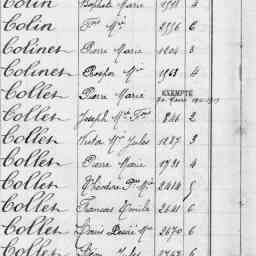 Colin Baptiste Marie 1951 4
Colin Fois Mie 2756 6
Colinet Pierre Marie 1204 3
Colinet Prosper Mie 1963 4
Collet Pierre Marie EXEMPTÉ
Collet Joseph Mie Fois 846 2
Collet Victor Mie Jules 1227 3
Collet Pierre Marie 1731 4
Collet Théodore Mie 2414
Collet François Emile 2641 6
Collet Louis Désiré Mie 2670 6
Collet Jules